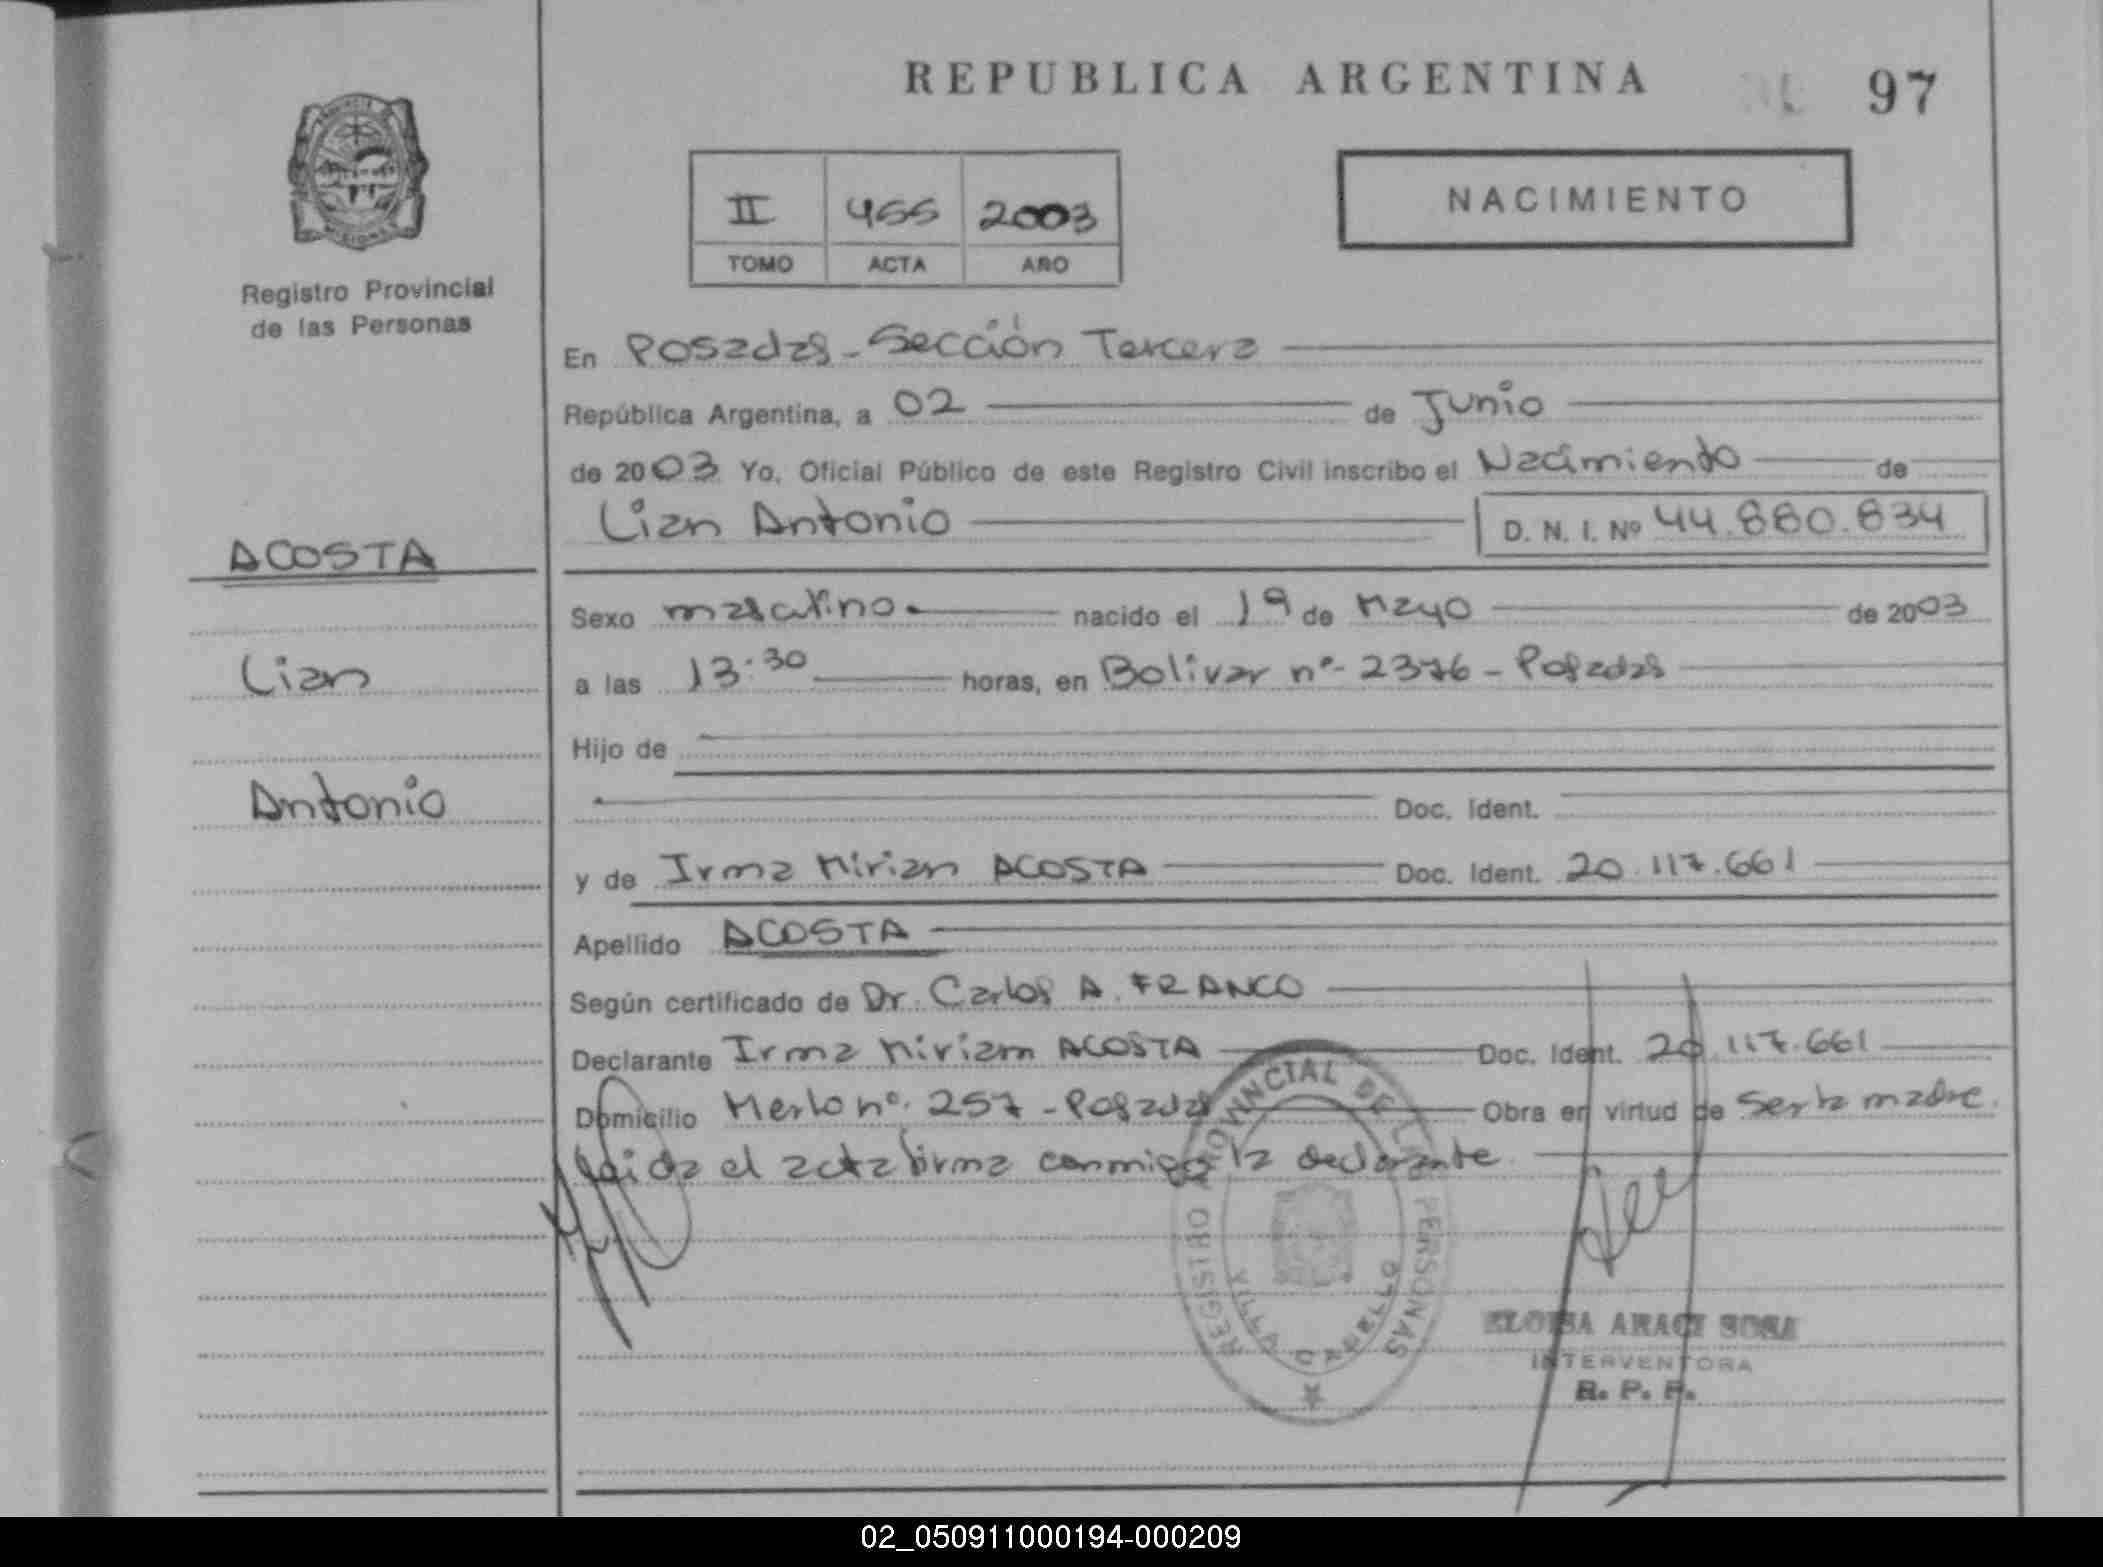 REPUBLICA ARGENTINA
97
II 455 2003
TOMO ACTA AÑO
NACIMIENTO
Registro Provincial
de las Personas
En Posadas - Sección Tercera
República Argentina, a 02 de Junio
de 2003 Yo, Oficial Público de este Registro Civil inscribo el Nacimiento de
Lian Antonio D. N. I. Nº 44.880.834
ACOSTA
Lian
Antonio
Sexo masculino nacido el 19 de Mayo de 2003
a las 13:30 horas, en Bolivar nº 2376 - Posadas
Hijo de
Doc. Ident.
y de Irma Mirian ACOSTA Doc. Ident. 20.117.661
Apellido ACOSTA
Según certificado de Dr. Carlos A. FRANCO
Declarante Irma Miriam ACOSTA Doc. Ident. 20.117.661
Domicilio Merlo nº 257 - Posadas Obra en virtud de ser la madre.
leida el acta firma conmigo la declarante.
REGISTRO PROVINCIAL DE LAS PERSONAS
VILLA CABELLO
ELOISA ARACI SOSA
INTERVENTORA
R. P. P.
02_050911000194-000209